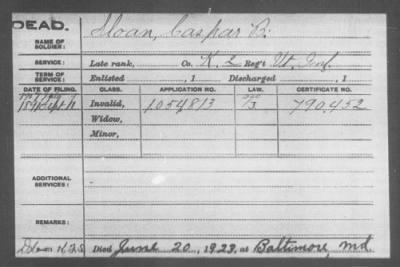 DEAD.
NAME OF SOLDIER: Sloan, Caspar B.
SERVICE: Late rank, Co. K, 2 Reg't Vt. Inf.
TERM OF SERVICE: Enlisted , 1 Discharged , 1
DATE OF FILING. CLASS. APPLICATION NO. LAW. CERTIFICATE NO.
Sept Invalid, 1054813 790,452
Widow,
Minor,
ADDITIONAL SERVICES:
REMARKS:
Died June 20, 1923, at Baltimore, Md.